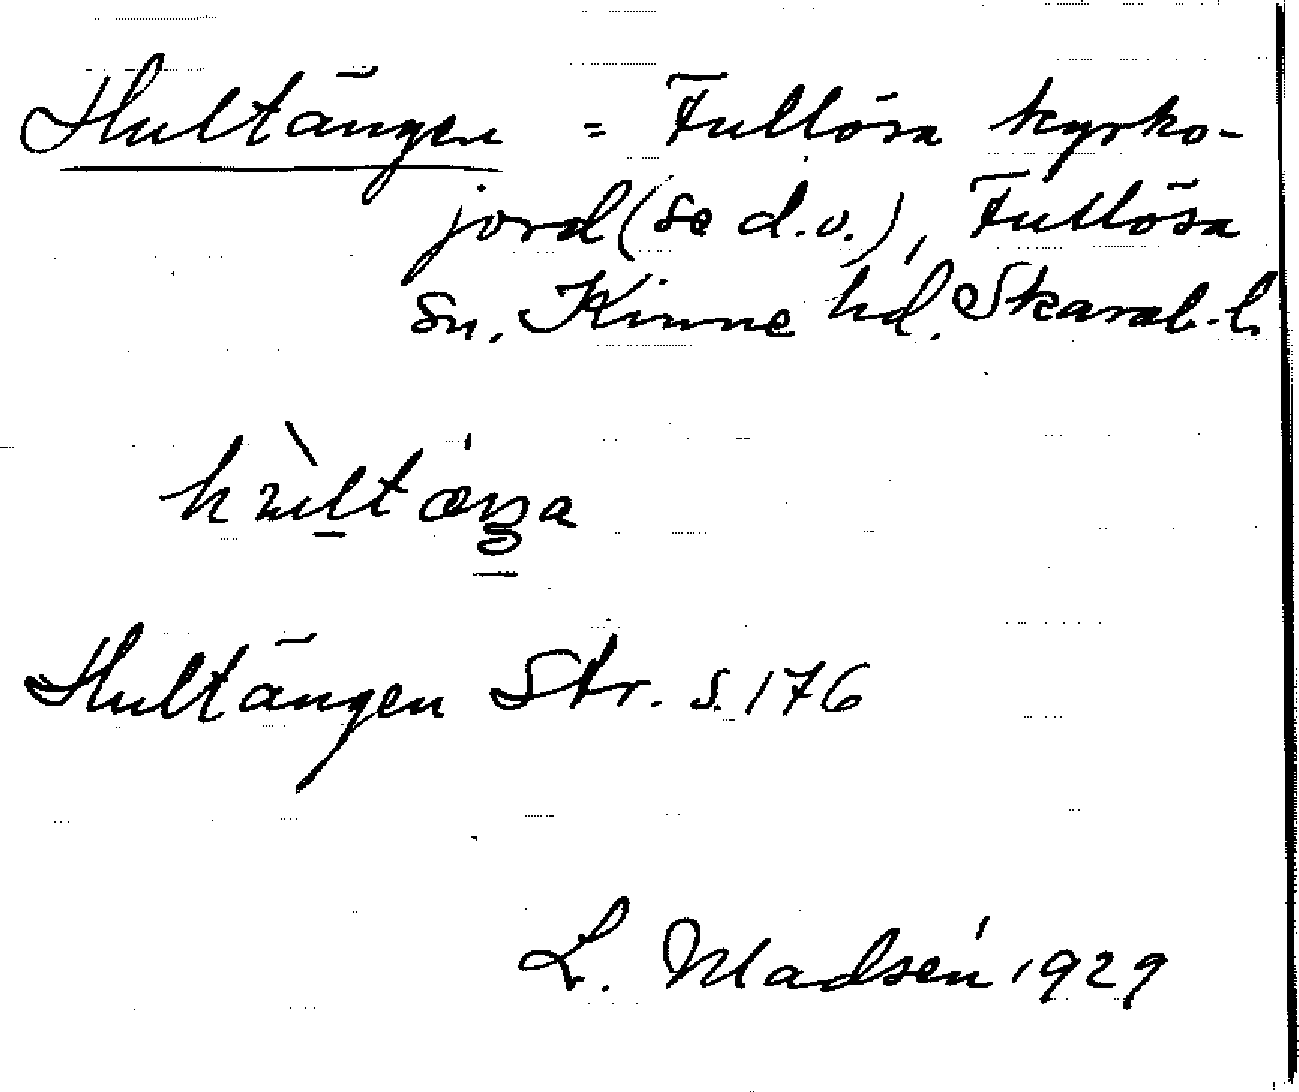 Hultängen = Fullösa kyrko-
jord (se d.o.), Fullösa
sn. Kinne hd. Skarab. l.
Hultängen Str. s. 176
L. Madsén 1929